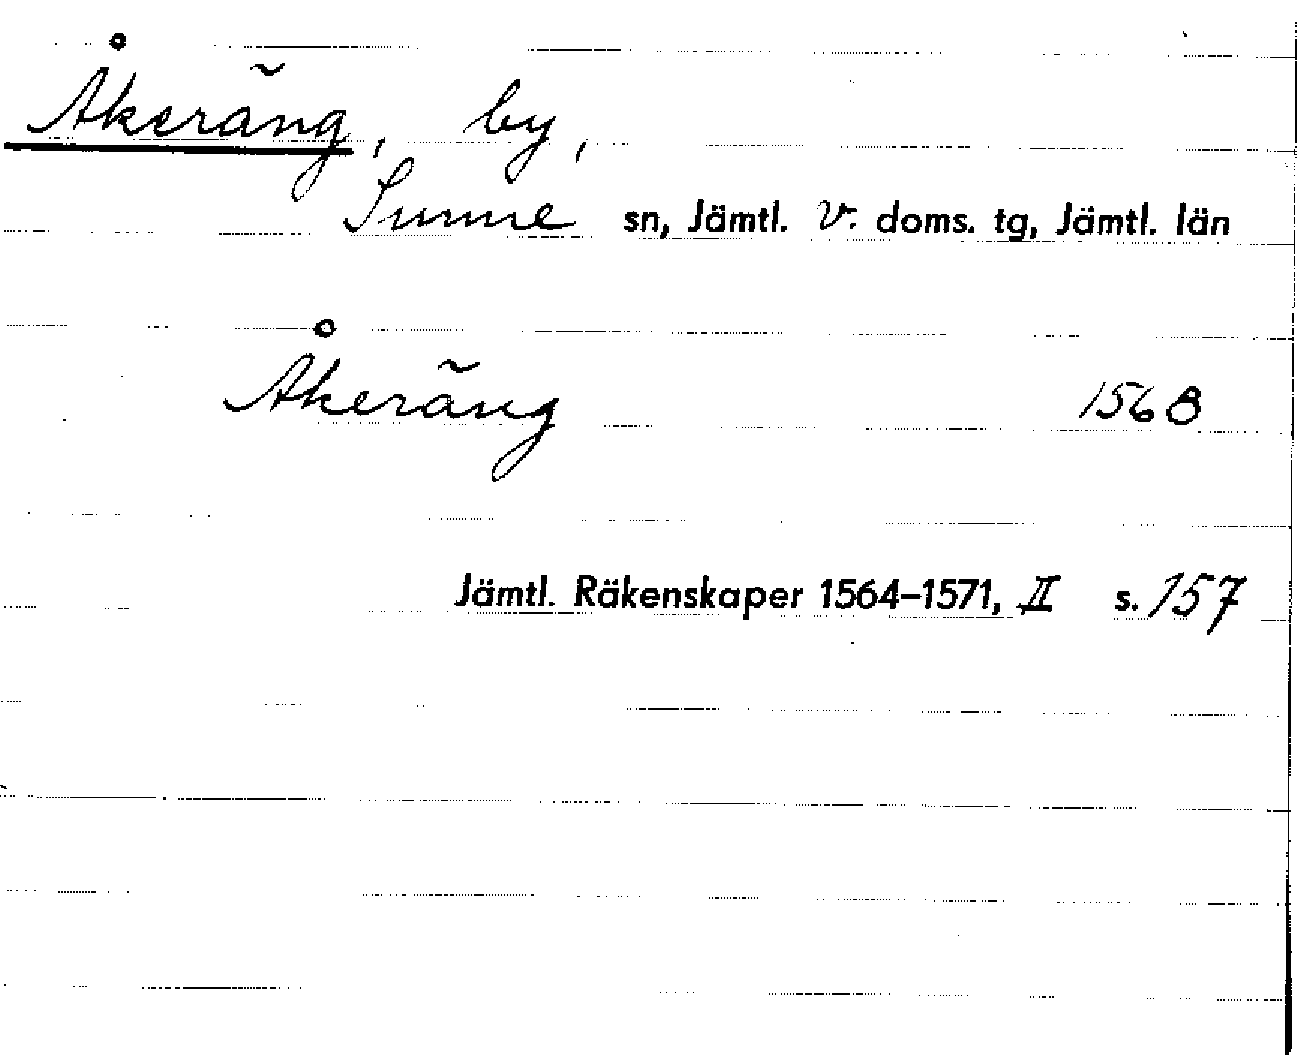 Åkeräng, by,
Sunne sn, Jämtl. V. doms. tg, Jämtl. län
Åkeräng 1568
Jämtl. Räkenskaper 1564–1571, II s. 157